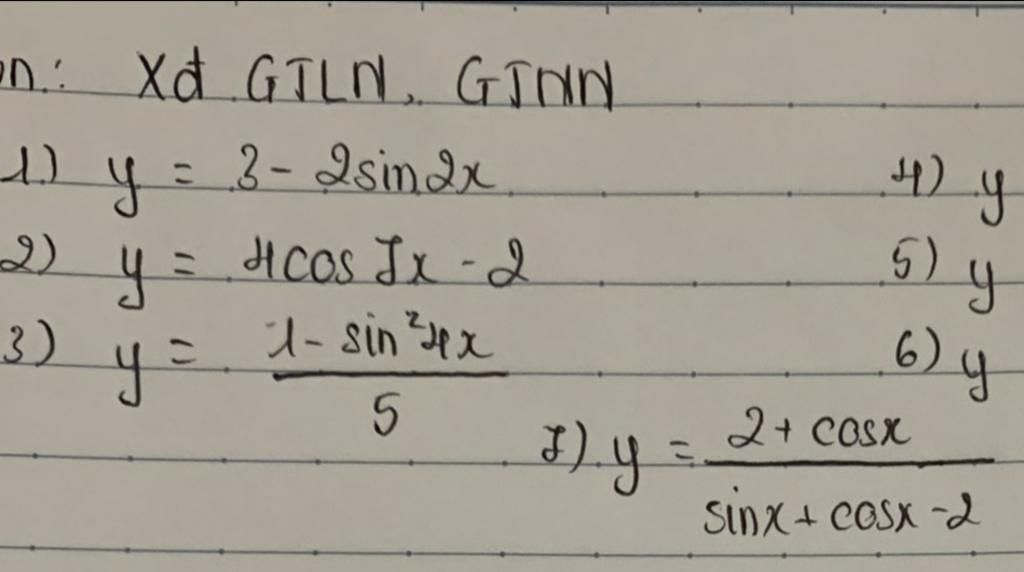 n: Xđ GTLN, GTNN
1) y = 3 - 2sin2x
4) y
2) y = 4cos7x - 2
5) y
3) y = (1 - sin²4x)/5
6) y
7) y = (2 + cosx)/(sinx + cosx - 2)